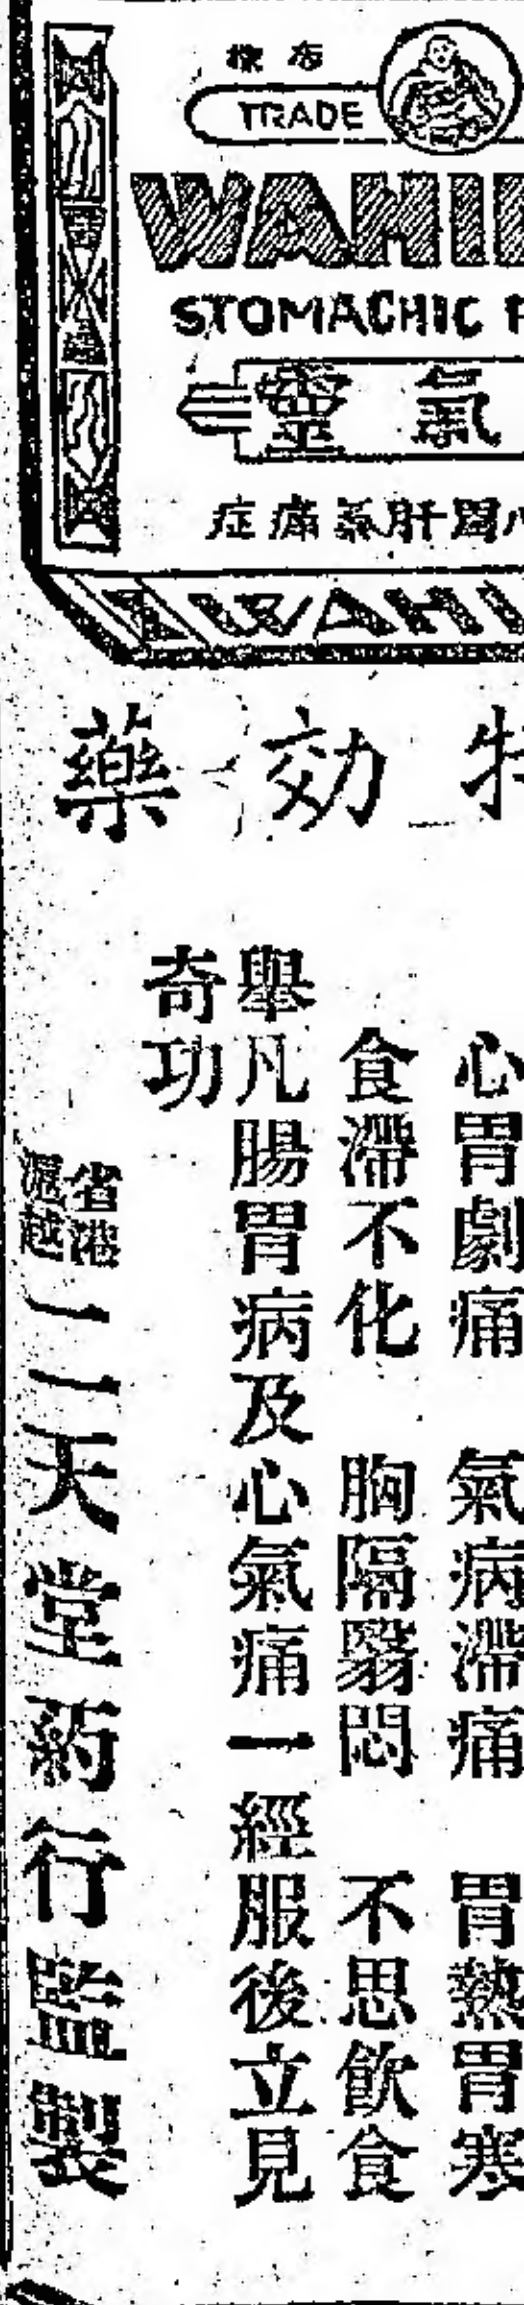 TRADE
WAHI
STOMACHIC P
氣靈
胃肝氣痛症
WAHI
特効藥
心胃劇痛 氣病滯痛 胃熱胃寒
食滯不化 胸隔翳悶 不思飲食
舉凡腸胃病及心氣痛一經服後立見
奇功
省港
滬越
二天堂葯行監製